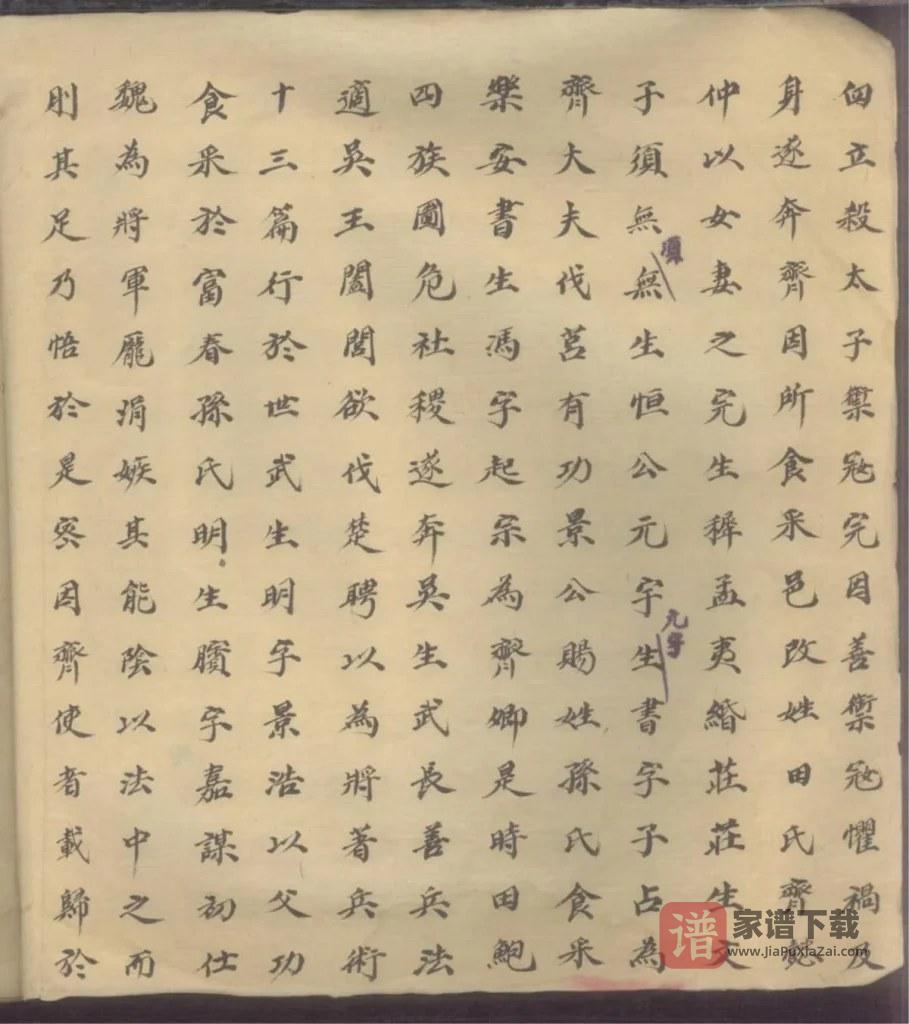 囪立殺太子禦㓂完因善禦㓂懼禍及
身遂奔齊因所食采邑改姓田氏齊懿
仲以女妻之完生稺孟夷緍莊莊生文
子須無無生恒公元字生書字子占為
須
九字
齊大夫伐莒有功景公賜姓孫氏食采
樂安書生馮字起宗為齊卿是時田鮑
四族圖危社稷遂奔吳生武長善兵法
適吳王闔閭欲伐楚聘以為將著兵術
十三篇行於世武生明字景浩以父功
食采於富春孫氏明生臏字嘉謀初仕
魏為將軍龐涓嫉其能陰以法中之而
刖其足乃悟於是密因齊使者載歸於
谱 家谱下载
www.JiaPuXiaZai.com